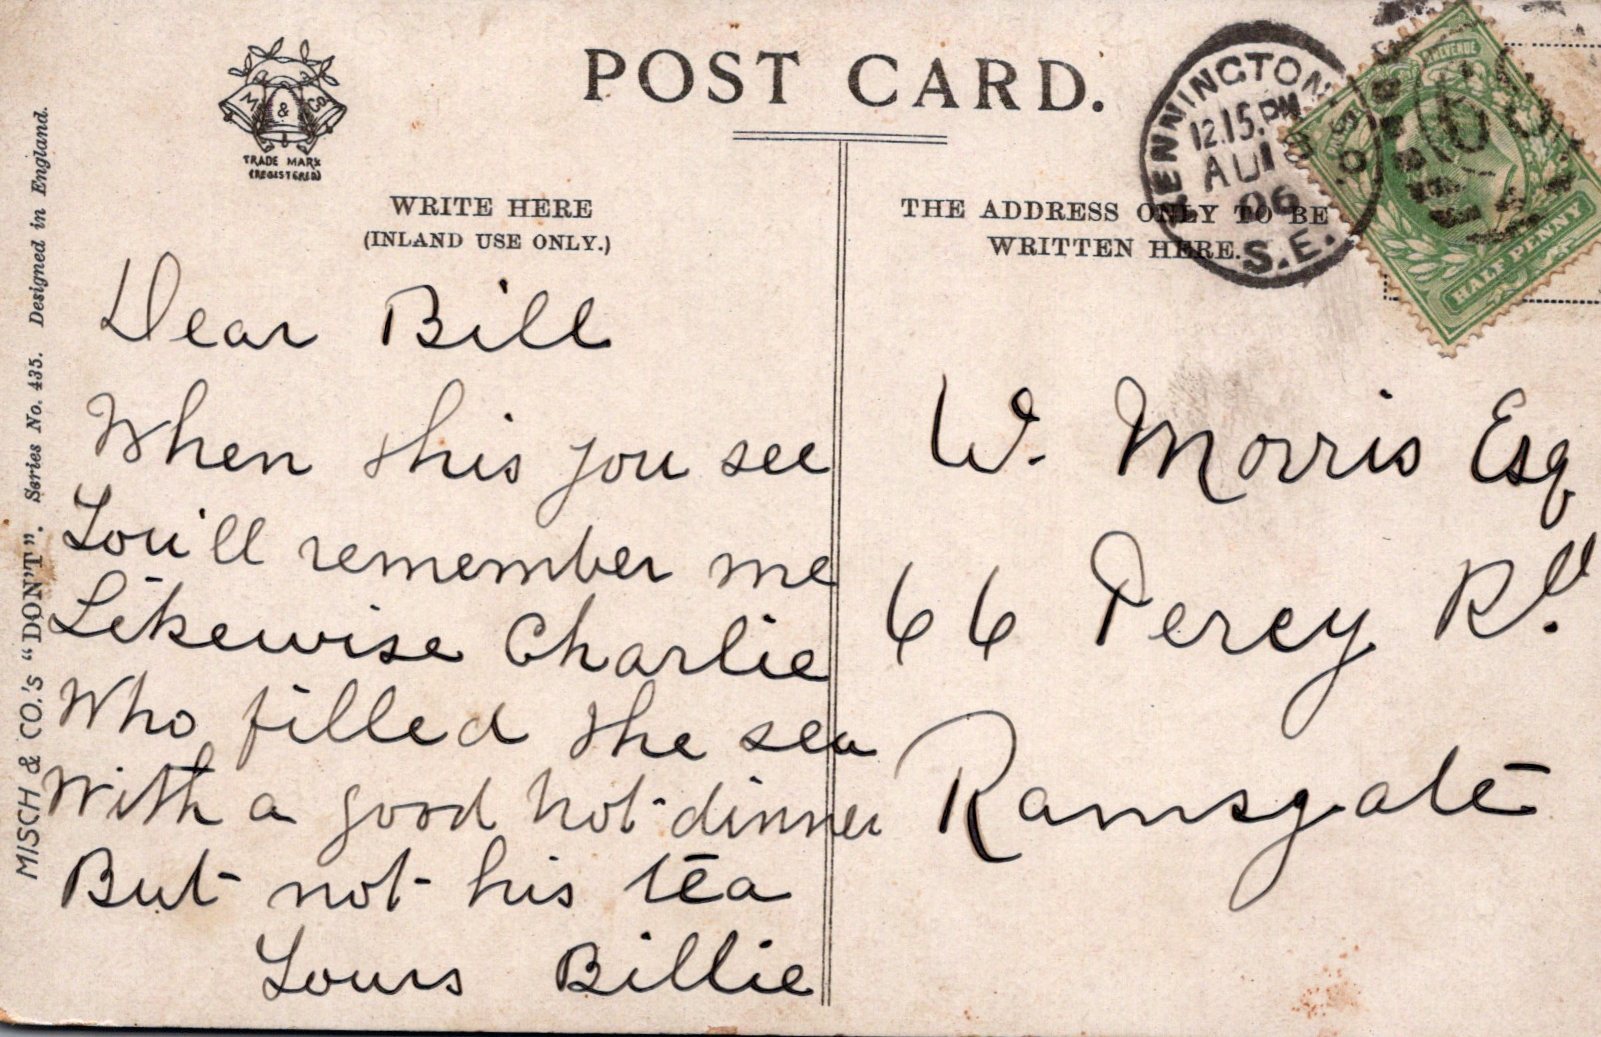 POST CARD.
M & Co
TRADE MARK
(REGISTERED)
WRITE HERE
(INLAND USE ONLY.)
Dear Bill
When this you see
You'll remember me
Likewise Charlie
Who filled the sea
With a good hot dinner
But not his tea
Yours Billie
THE ADDRESS ONLY TO BE
WRITTEN HERE.
KENNINGTON
12.15.PM
AU
06
S.E.
HALF PENNY
W. Morris Esq
66 Percy Rd.
Ramsgate
MISCH & CO.'s "DON'T". Series No. 435. Designed in England.